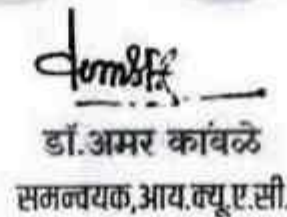 डॉ.अमर कांबळे
समन्वयक,आय.क्यु.ए.सी.